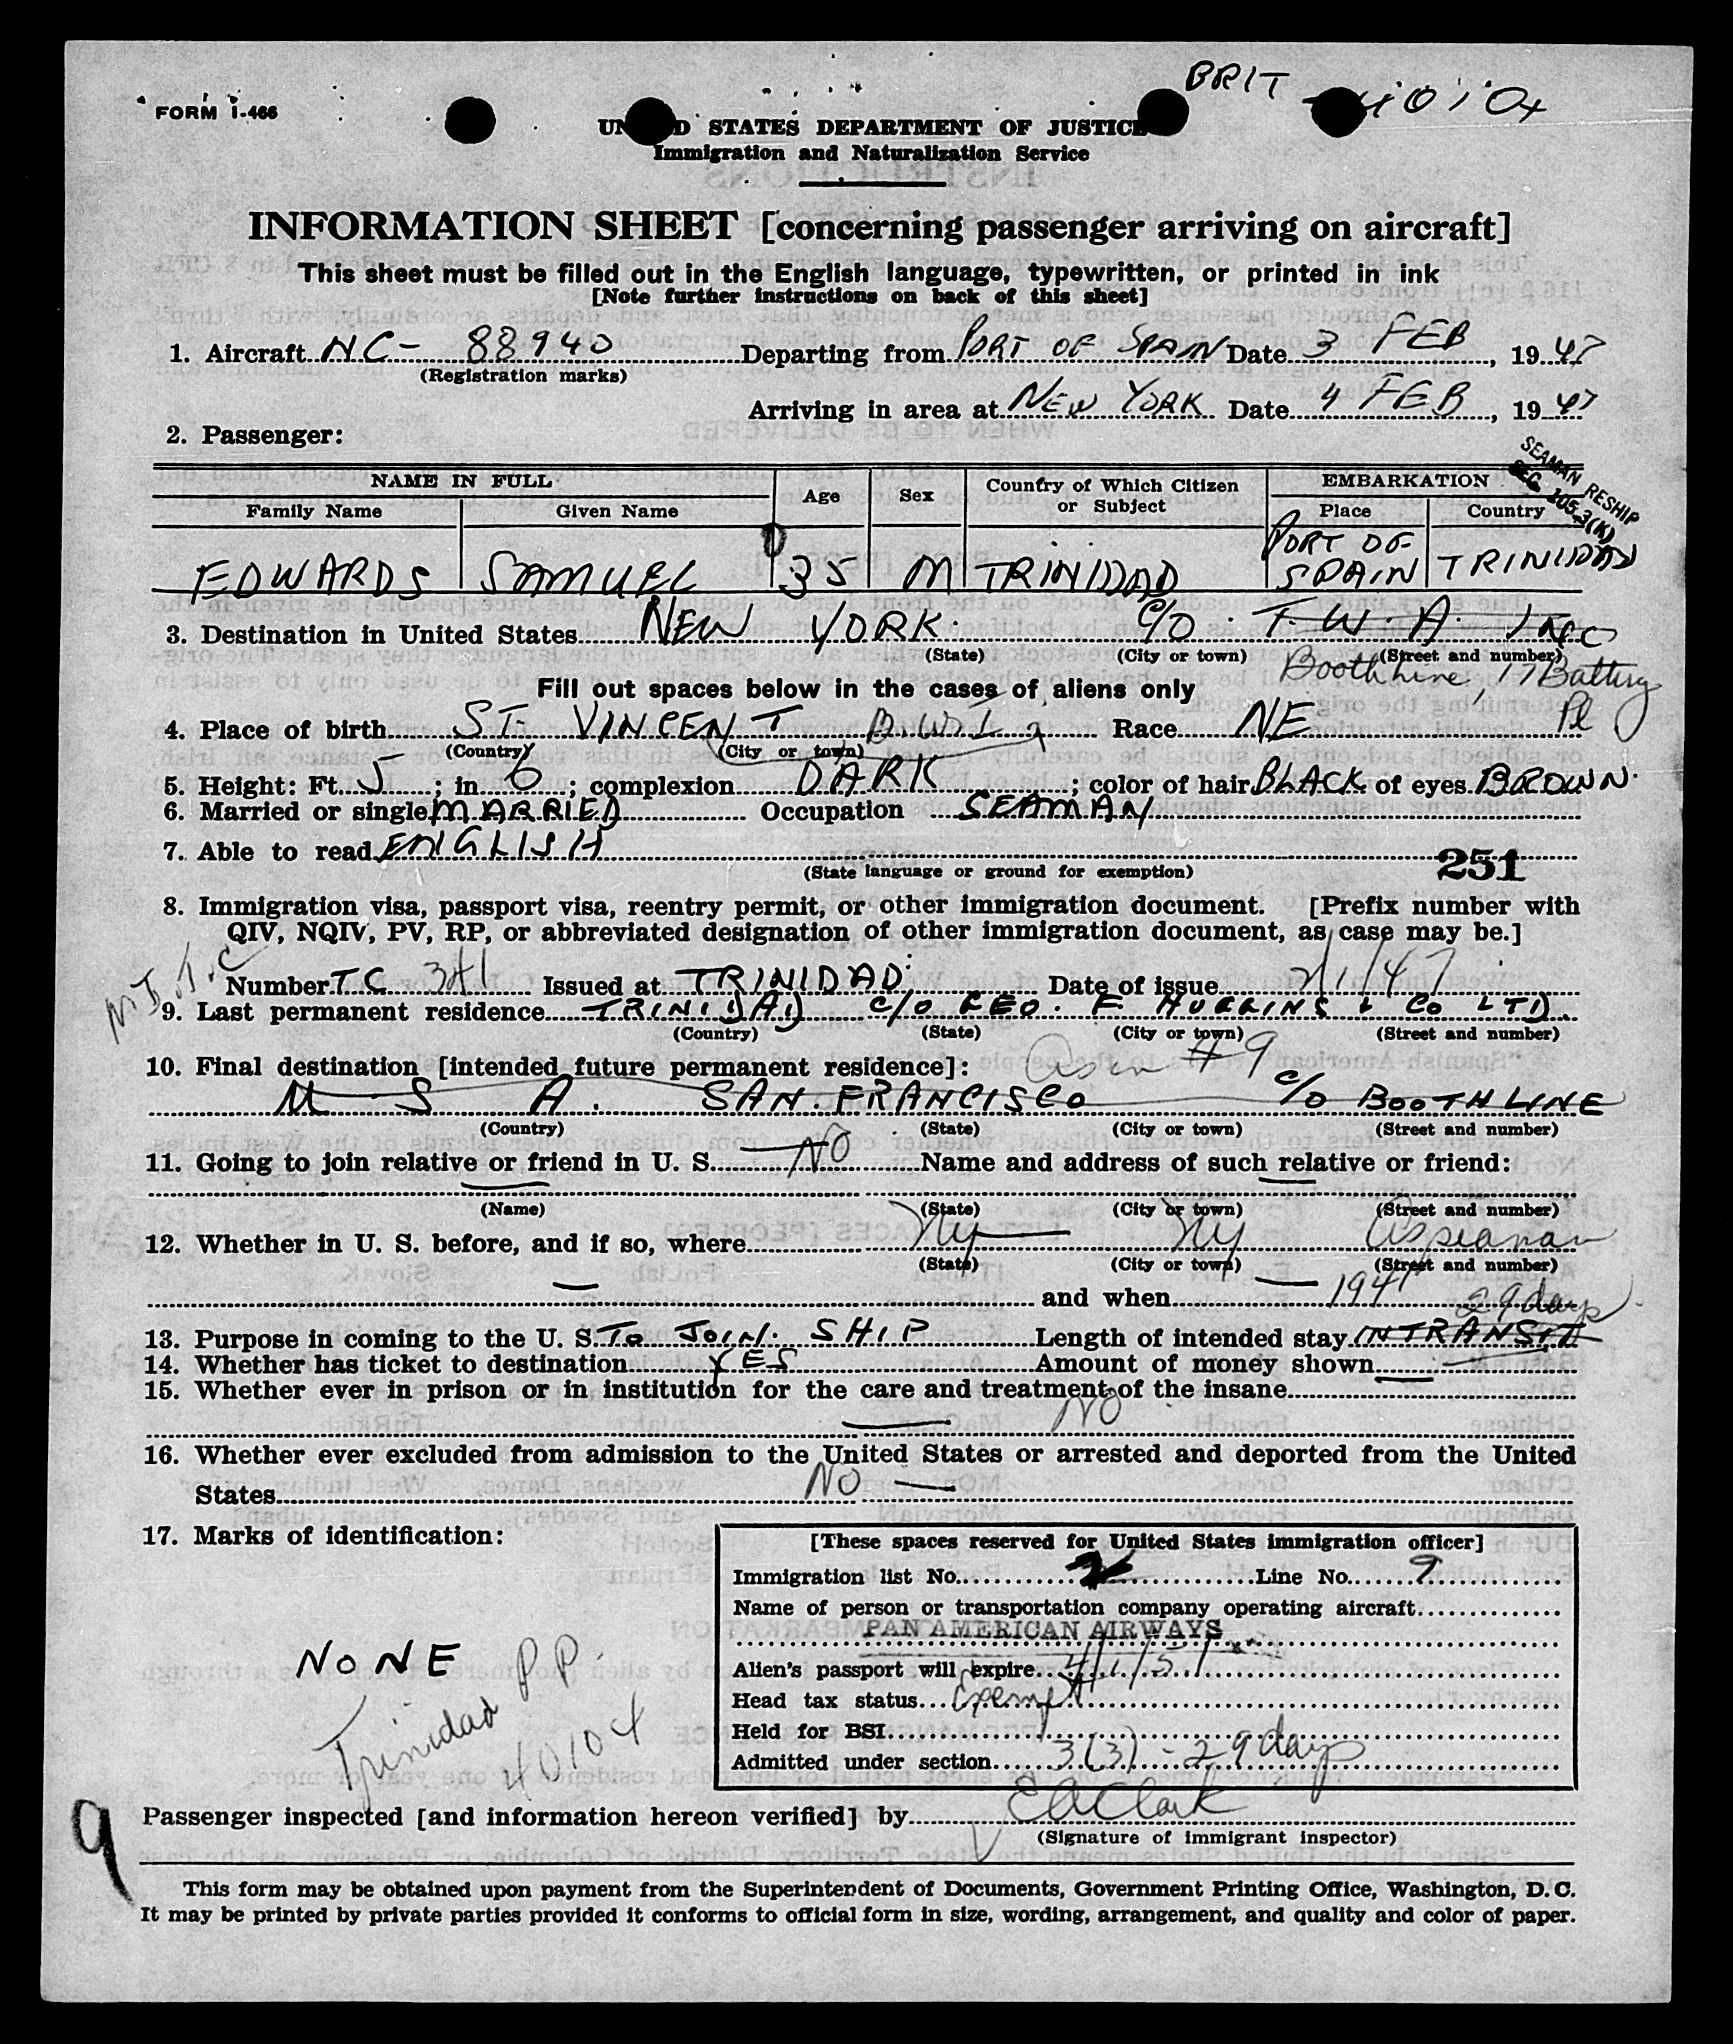 BRIT 40104
FORM I-466
UN D STATES DEPARTMENT OF JUSTICE
Immigration and Naturalization Service
INFORMATION SHEET [concerning passenger arriving on aircraft]
This sheet must be filled out in the English language, typewritten, or printed in ink
[Note further instructions on back of this sheet]
1. Aircraft NC- 88940 Departing from PORT OF SPAIN Date 3 FEB, 1947
(Registration marks)
Arriving in area at NEW YORK Date 4 FEB, 1947
2. Passenger:
SEAMAN RESHIP
SEC. 105.3(K)
NAME IN FULL Age Sex Country of Which Citizen or Subject EMBARKATION
Family Name Given Name Place Country
EDWARDS SAMUEL 35 M TRINIDAD PORT OF SPAIN TRINIDAD
3. Destination in United States NEW YORK. C/O T.W.A. INC
(State) (City or town) (Street and number)
Booth Line, 17 Battery Pl
Fill out spaces below in the cases of aliens only
4. Place of birth ST. VINCENT B.W.I. Race NE
(Country) (City or town)
5. Height: Ft. 5; in 6; complexion DARK; color of hair BLACK of eyes BROWN.
6. Married or single MARRIED Occupation SEAMAN
7. Able to read ENGLISH
(State language or ground for exemption) 251
8. Immigration visa, passport visa, reentry permit, or other immigration document. [Prefix number with
QIV, NQIV, PV, RP, or abbreviated designation of other immigration document, as case may be.]
Number TC 341 Issued at TRINIDAD Date of issue 2/1/47
9. Last permanent residence TRINIDAD C/O GEO. F HUGGINS & CO LTD.
(Country) (State) (City or town) (Street and number)
10. Final destination [intended future permanent residence]: #9
U S A. SAN. FRANCISCO C/O BOOTHLINE
(Country) (State) (City or town) (Street and number)
11. Going to join relative or friend in U. S. NO Name and address of such relative or friend:
(Name) (State) (City or town) (Street and number)
12. Whether in U. S. before, and if so, where NY NY as seaman
(State) (City or town) (Street and number)
and when 1941
29 days
13. Purpose in coming to the U. S. TO JOIN. SHIP Length of intended stay INTRANSIT
14. Whether has ticket to destination YES Amount of money shown
15. Whether ever in prison or in institution for the care and treatment of the insane
NO
16. Whether ever excluded from admission to the United States or arrested and deported from the United
States NO
17. Marks of identification:
NONE
Trinidad PP.
40104
[These spaces reserved for United States immigration officer]
Immigration list No. 2 Line No. 9
Name of person or transportation company operating aircraft
PAN AMERICAN AIRWAYS
Alien's passport will expire 4/1/51
Head tax status Exempt
Held for BSI
Admitted under section 3(3) - 29 days
9
Passenger inspected [and information hereon verified] by EAClark
(Signature of immigrant inspector)
This form may be obtained upon payment from the Superintendent of Documents, Government Printing Office, Washington, D. C.
It may be printed by private parties provided it conforms to official form in size, wording, arrangement, and quality and color of paper.